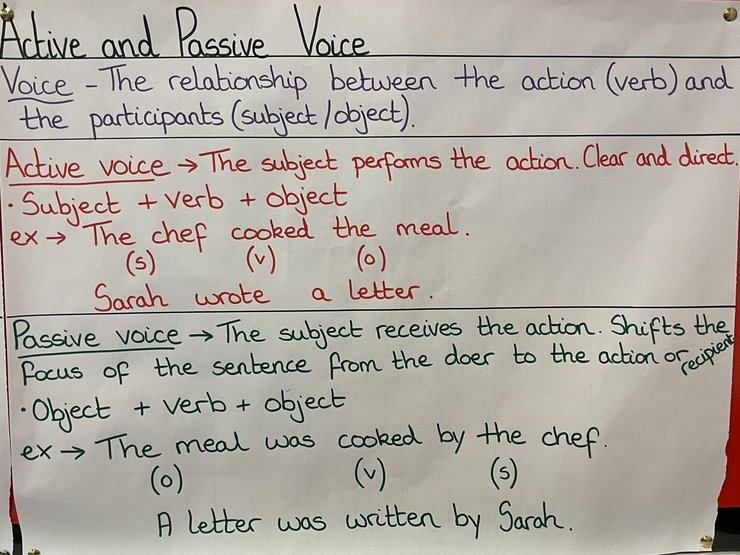 Active and Passive Voice
Voice - The relationship between the action (verb) and
the participants (subject/object).
Active voice → The subject performs the action. Clear and direct.
• Subject + verb + object
ex → The chef cooked the meal.
(s) (v) (o)
Sarah wrote a letter.
Passive voice → The subject receives the action. Shifts the
focus of the sentence from the doer to the action or recipient.
• Object + verb + object
ex → The meal was cooked by the chef.
(o) (v) (s)
A letter was written by Sarah.